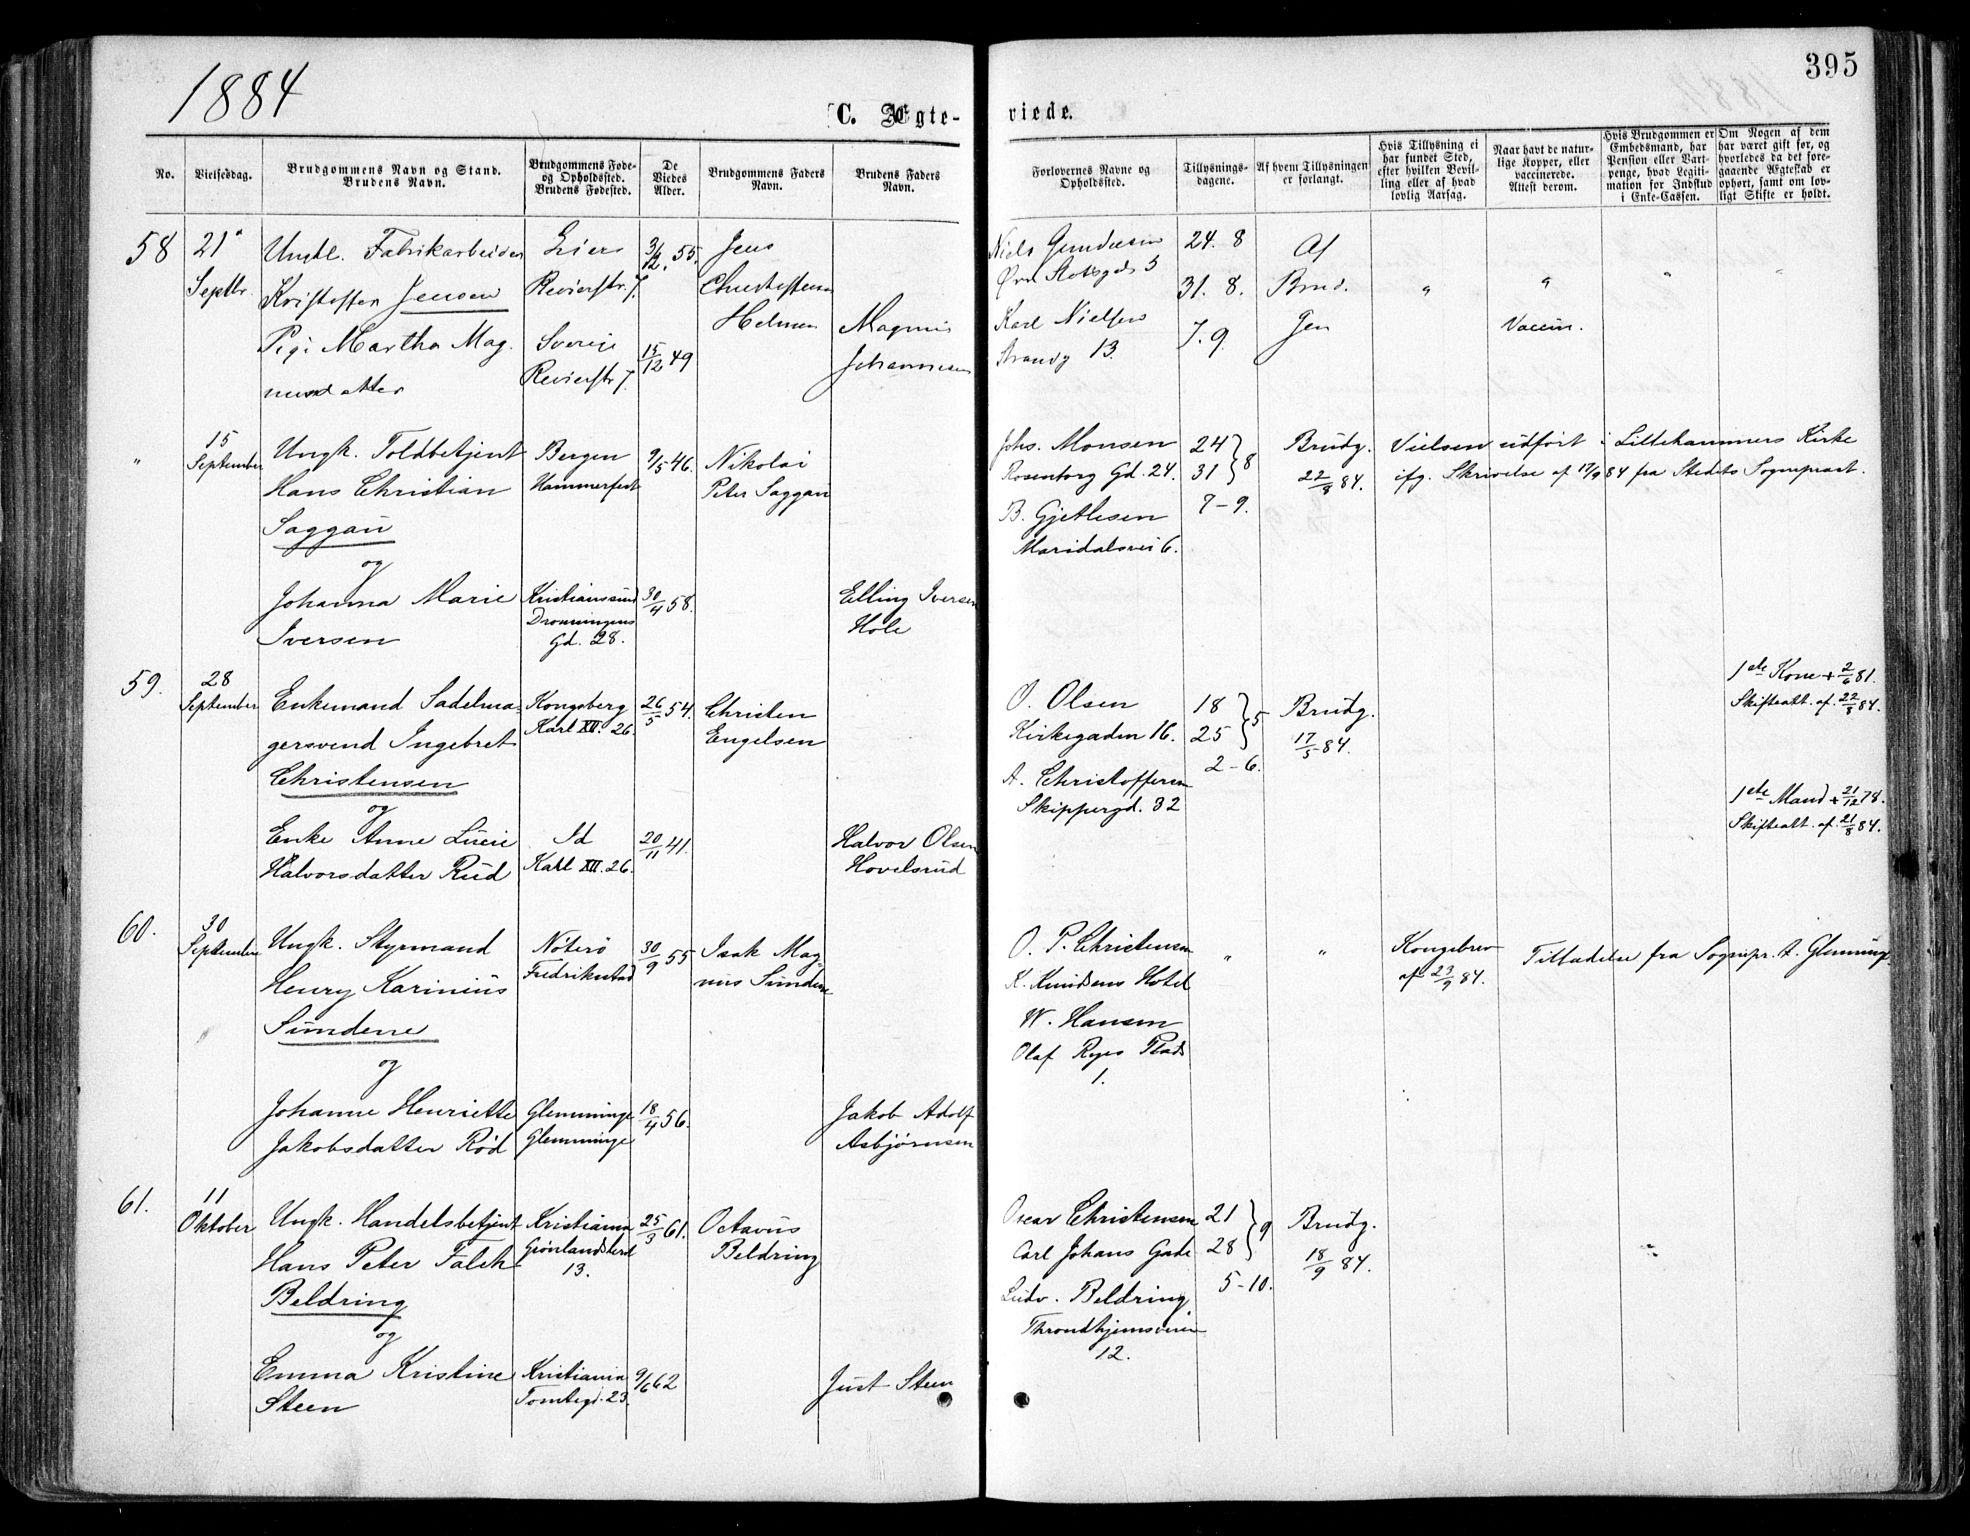 1884
395
C. Ægte-
viede.
No.
Vielsesdag.
Brudgommens Navn og Stand.
Brudens Navn.
Brudgommens Føde-
og Opholdssted.
Brudens Fødested.
De
Viedes
Alder.
Brudgommens Faders
Navn.
Brudens Faders
Navn.
Forlovernes Navne og
Opholdssted.
Tillysnings-
dagene.
Af hvem Tillysningen
er forlangt.
Hvis Tillysning ei
har fundet Sted,
efter hvilken Bevil-
ling eller af hvad
lovlig Aarsag.
Naar havt de natur-
lige Kopper, eller
vaccinerede.
Attest derom.
Hvis Brudgommen er
Embedsmand, har
Pension eller Vart-
penge, hvad Legiti-
mation for Indskud
i Enke-Cassen.
Om Nogen af dem
har været gift før, og
hvorledes da det fore-
gaaende Ægteskab er
ophørt, samt om lov-
ligt Skifte er holdt.
58
21
Septbr
Ungk. Fabrikarbeider
Kristoffer Jensen
Pige Martha Mag-
nusdatter
Liers
Revierstr 7.
Sverige
Revierstr 7.
3/12 55.
15/12 49
Jens
Christoffersen
Helmen
Magnus
Johannesen
Niels Gundersen
Øvr Slotsgd 5
Karl Nielsen
Strandg 13.
24. 8
31. 8.
7. 9
Af
Brud.
Gen
"
"
Vaccin.
"
"
"
15
September
Ungk. Toldbetjent
Hans Christian
Saggau
og
Johanna Marie
Iversen
Bergen
Hammerfest
Kristianssund
Dronningens
Gd. 28.
9/5 46.
30/4 58.
Nikolai
Peter Saggau
Elling Iversen
Hole
Johs. Monsen
Rosenborg Gd. 24.
B. Gjetlesen
Maridalsvei 6.
24
31 } 8
7-9.
Brudg.
22/8 84.
Vielsen udført i Lillehammers Kirke
ifg. Skrivelse af 17/9 84 fra Stedets Sogneprest.
59.
28
September
Enkemand Sadelma-
gersvend Ingebret
Christensen
og
Enke Anne Lucie
Halvorsdatter Rud
Kongsberg
Karl XII. 26.
Id
Karl XII. 26.
26/5 54.
20/11 41.
Christen
Engelsen
Halvor Olsen
Hovelsrud
O. Olsen
Kirkegaden 16.
A. Christoffersen
Skippergd. 32
18
25 } 5
2-6.
Brudg.
17/5 84.
1ste Kone + 2/6 81.
Skifteatt. af. 22/8 84.
1ste Mand + 21/12 78.
Skifteatt. af. 21/8 84.
60.
30
September
Ungk. Styrmand
Henry Karinius
Sundene
og
Johanne Henriette
Jakobsdatter Rød
Nøterø
Fredrikstad
Glemminge
Glemminge
30/9 55
18/4 56.
Isak Mag-
nus Sundene
Jakob Adolf
Asbjørnsen
O. P. Christensen
K. Knudsens Hotel
W. Hansen
Olaf Ryes Plads
1.
"
"
Kongebrev
af 23/9 84.
Tilladelse fra Sognepr. t. Glemminge
61.
11
Oktober
Ungk. Handelsbetjent
Hans Peter Falch
Beldring
og
Emma Kristine
Steen
Kristiania
Grønlandsleret
13.
Kristiania
Tomtegd. 23.
25/3 61.
9/6 62
Octavius
Beldring
Just Steen
Oscar Christensen
Carl Johans Gade
Ludv. Beldring
Throndhjemsveien
12.
21
28 } 9
5-10.
Brudg.
18/9 84.